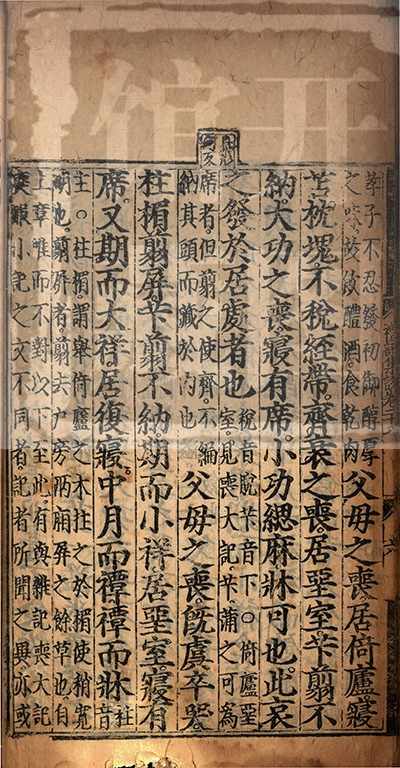 孝子不忍發初御醇厚
之味故飲醴酒食乾肉
父母之喪居倚廬寢
苫枕塊不稅絰帶齊衰之喪居堊室芐翦不
納大功之喪寢有席小功緦麻牀可也此哀
之發於居處者也
稅音脫芐音下○倚廬堊
室見喪大記芐蒲之可為
席者但翦之使齊不編
納其頭而藏於內也
父母之喪旣虞卒哭
柱楣翦屏芐翦不納期而小祥居堊室寢有
席又期而大祥居復寢中月而禫禫而牀
柱
音
主○柱楣謂舉倚廬之木柱之於楣使稍寬
明也翦屏者翦去戶旁兩廂屏之餘草也自
上章唯而不對以下至此有與雜記喪大記
喪服小記之文不同者記者所聞之異亦或